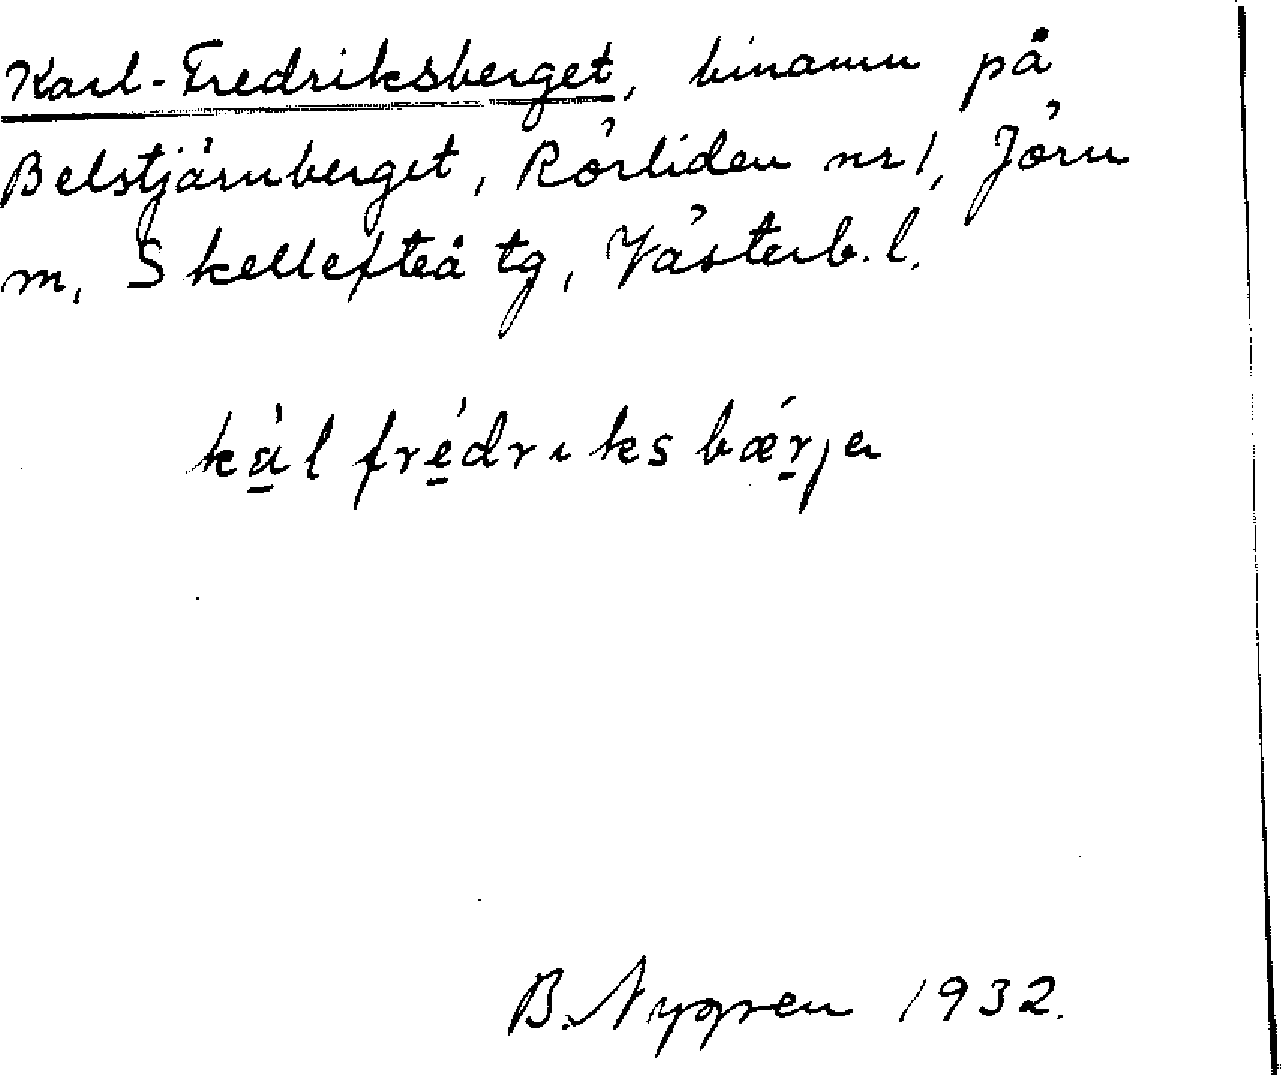 Karl-Fredriksberget, binamn på
Belstjärnberget, Rörliden nr 1, Jörn
m, Skellefteå tg, Västerb. l.
kà̱l fré̱drıksbǽṟja
B. Nygren 1932.